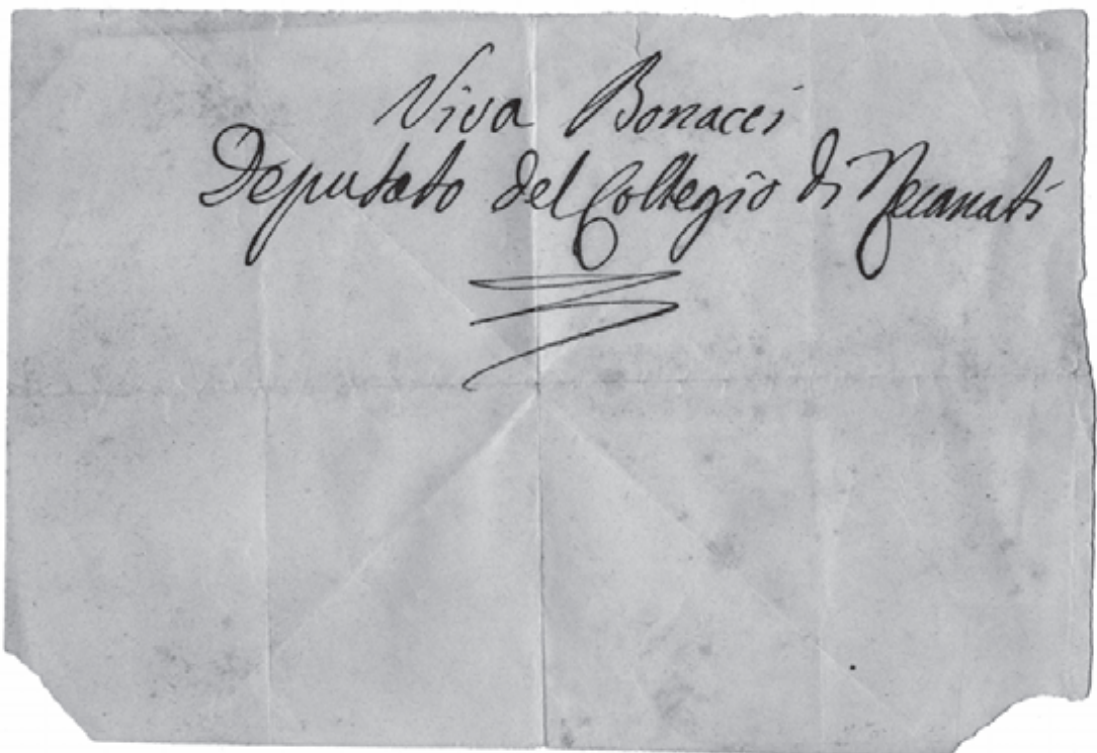 Viva Bonacci
Deputato del Collegio di Recanati